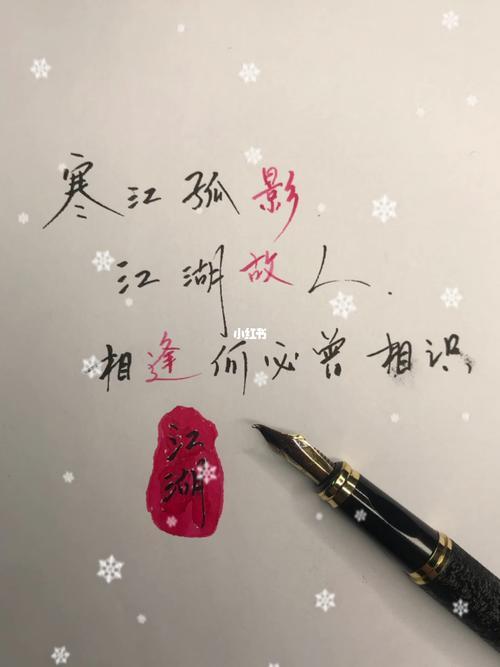 寒江孤影
江湖故人.
相逢何必曾相识
小红书
江
湖